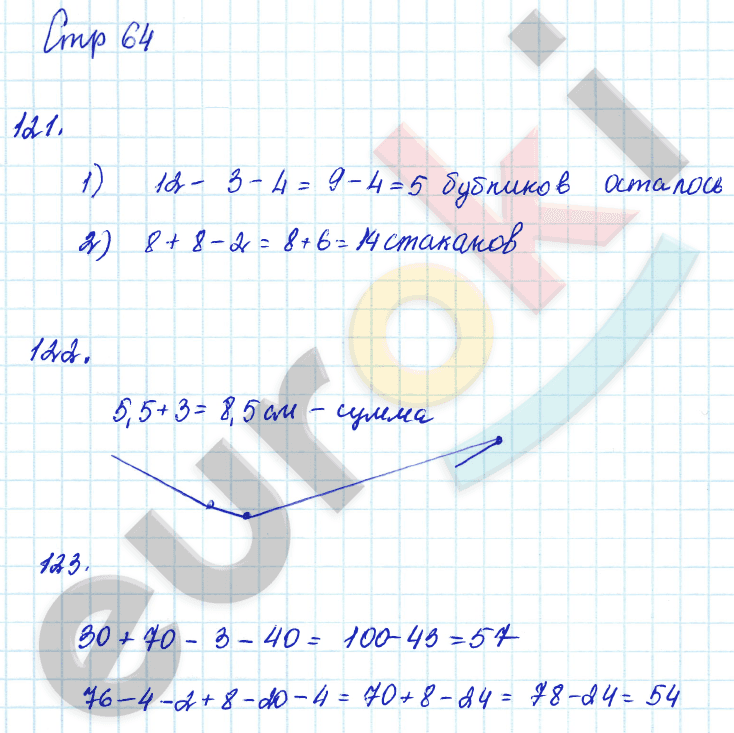 Стр 64
121.
1) 12 - 3 - 4 = 9 - 4 = 5 бубликов осталось
2) 8 + 8 - 2 = 8 + 6 = 14 стаканов
122.
5,5 + 3 = 8,5 см - сумма
123.
30 + 70 - 3 - 40 = 100 - 43 = 57
76 - 4 - 2 + 8 - 20 - 4 = 70 + 8 - 24 = 78 - 24 = 54
euroki